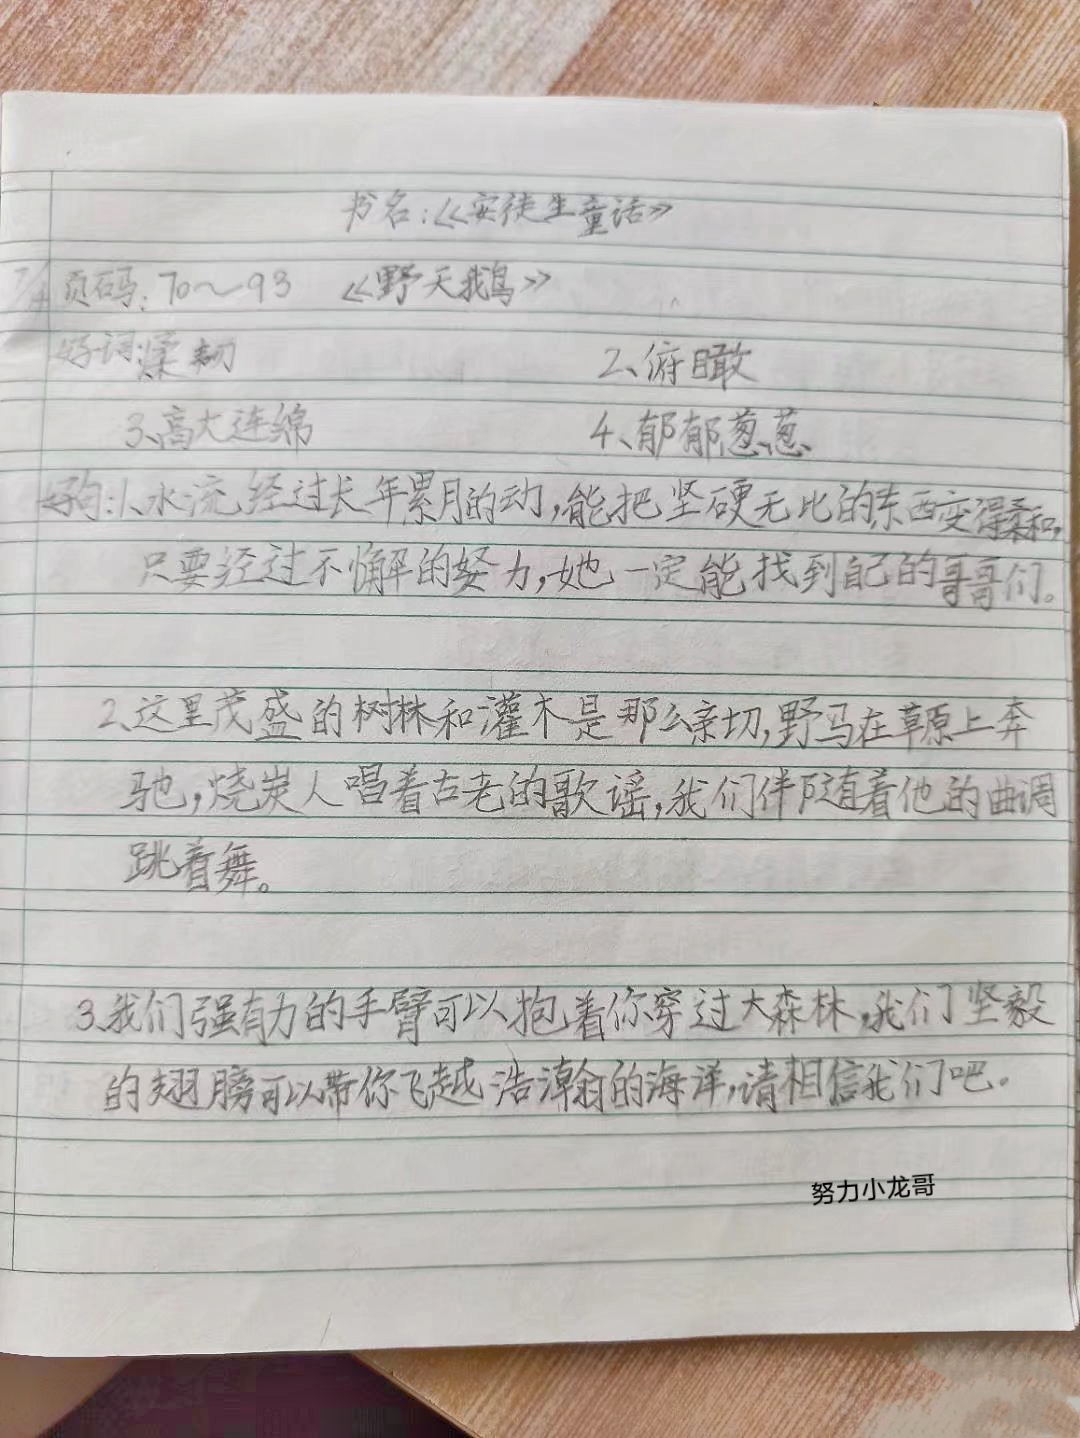 书名:《安徒生童话》
页码:70~93 《野天鹅》
好词:柔韧 2、俯瞰
3、高大连绵 4、郁郁葱葱
好句:1、水流经过长年累月的动,能把坚硬无比的东西变得柔和,
只要经过不懈的努力,她一定能找到自己的哥哥们。
2、这里茂盛的树林和灌木是那么亲切,野马在草原上奔
驰,烧炭人唱着古老的歌谣,我们伴随着他的曲调
跳着舞。
3、我们强有力的手臂可以抱着你穿过大森林,我们坚毅
的翅膀可以带你飞越浩瀚的海洋,请相信我们吧。
努力小龙哥